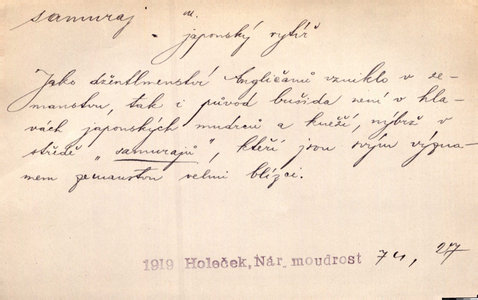 samuraj m.
japonský rytíř
Jako džentlmenství Angličanů vzniklo v ze-
manstvu, tak i původ bušida není v hla-
vách japonských mudrců a kněží, nýbrž v
středě „samurajů“, kteří jsou svým význa-
mem zemanstvu velmi blízci.
1919 Holeček, Nár. moudrost 74, 277